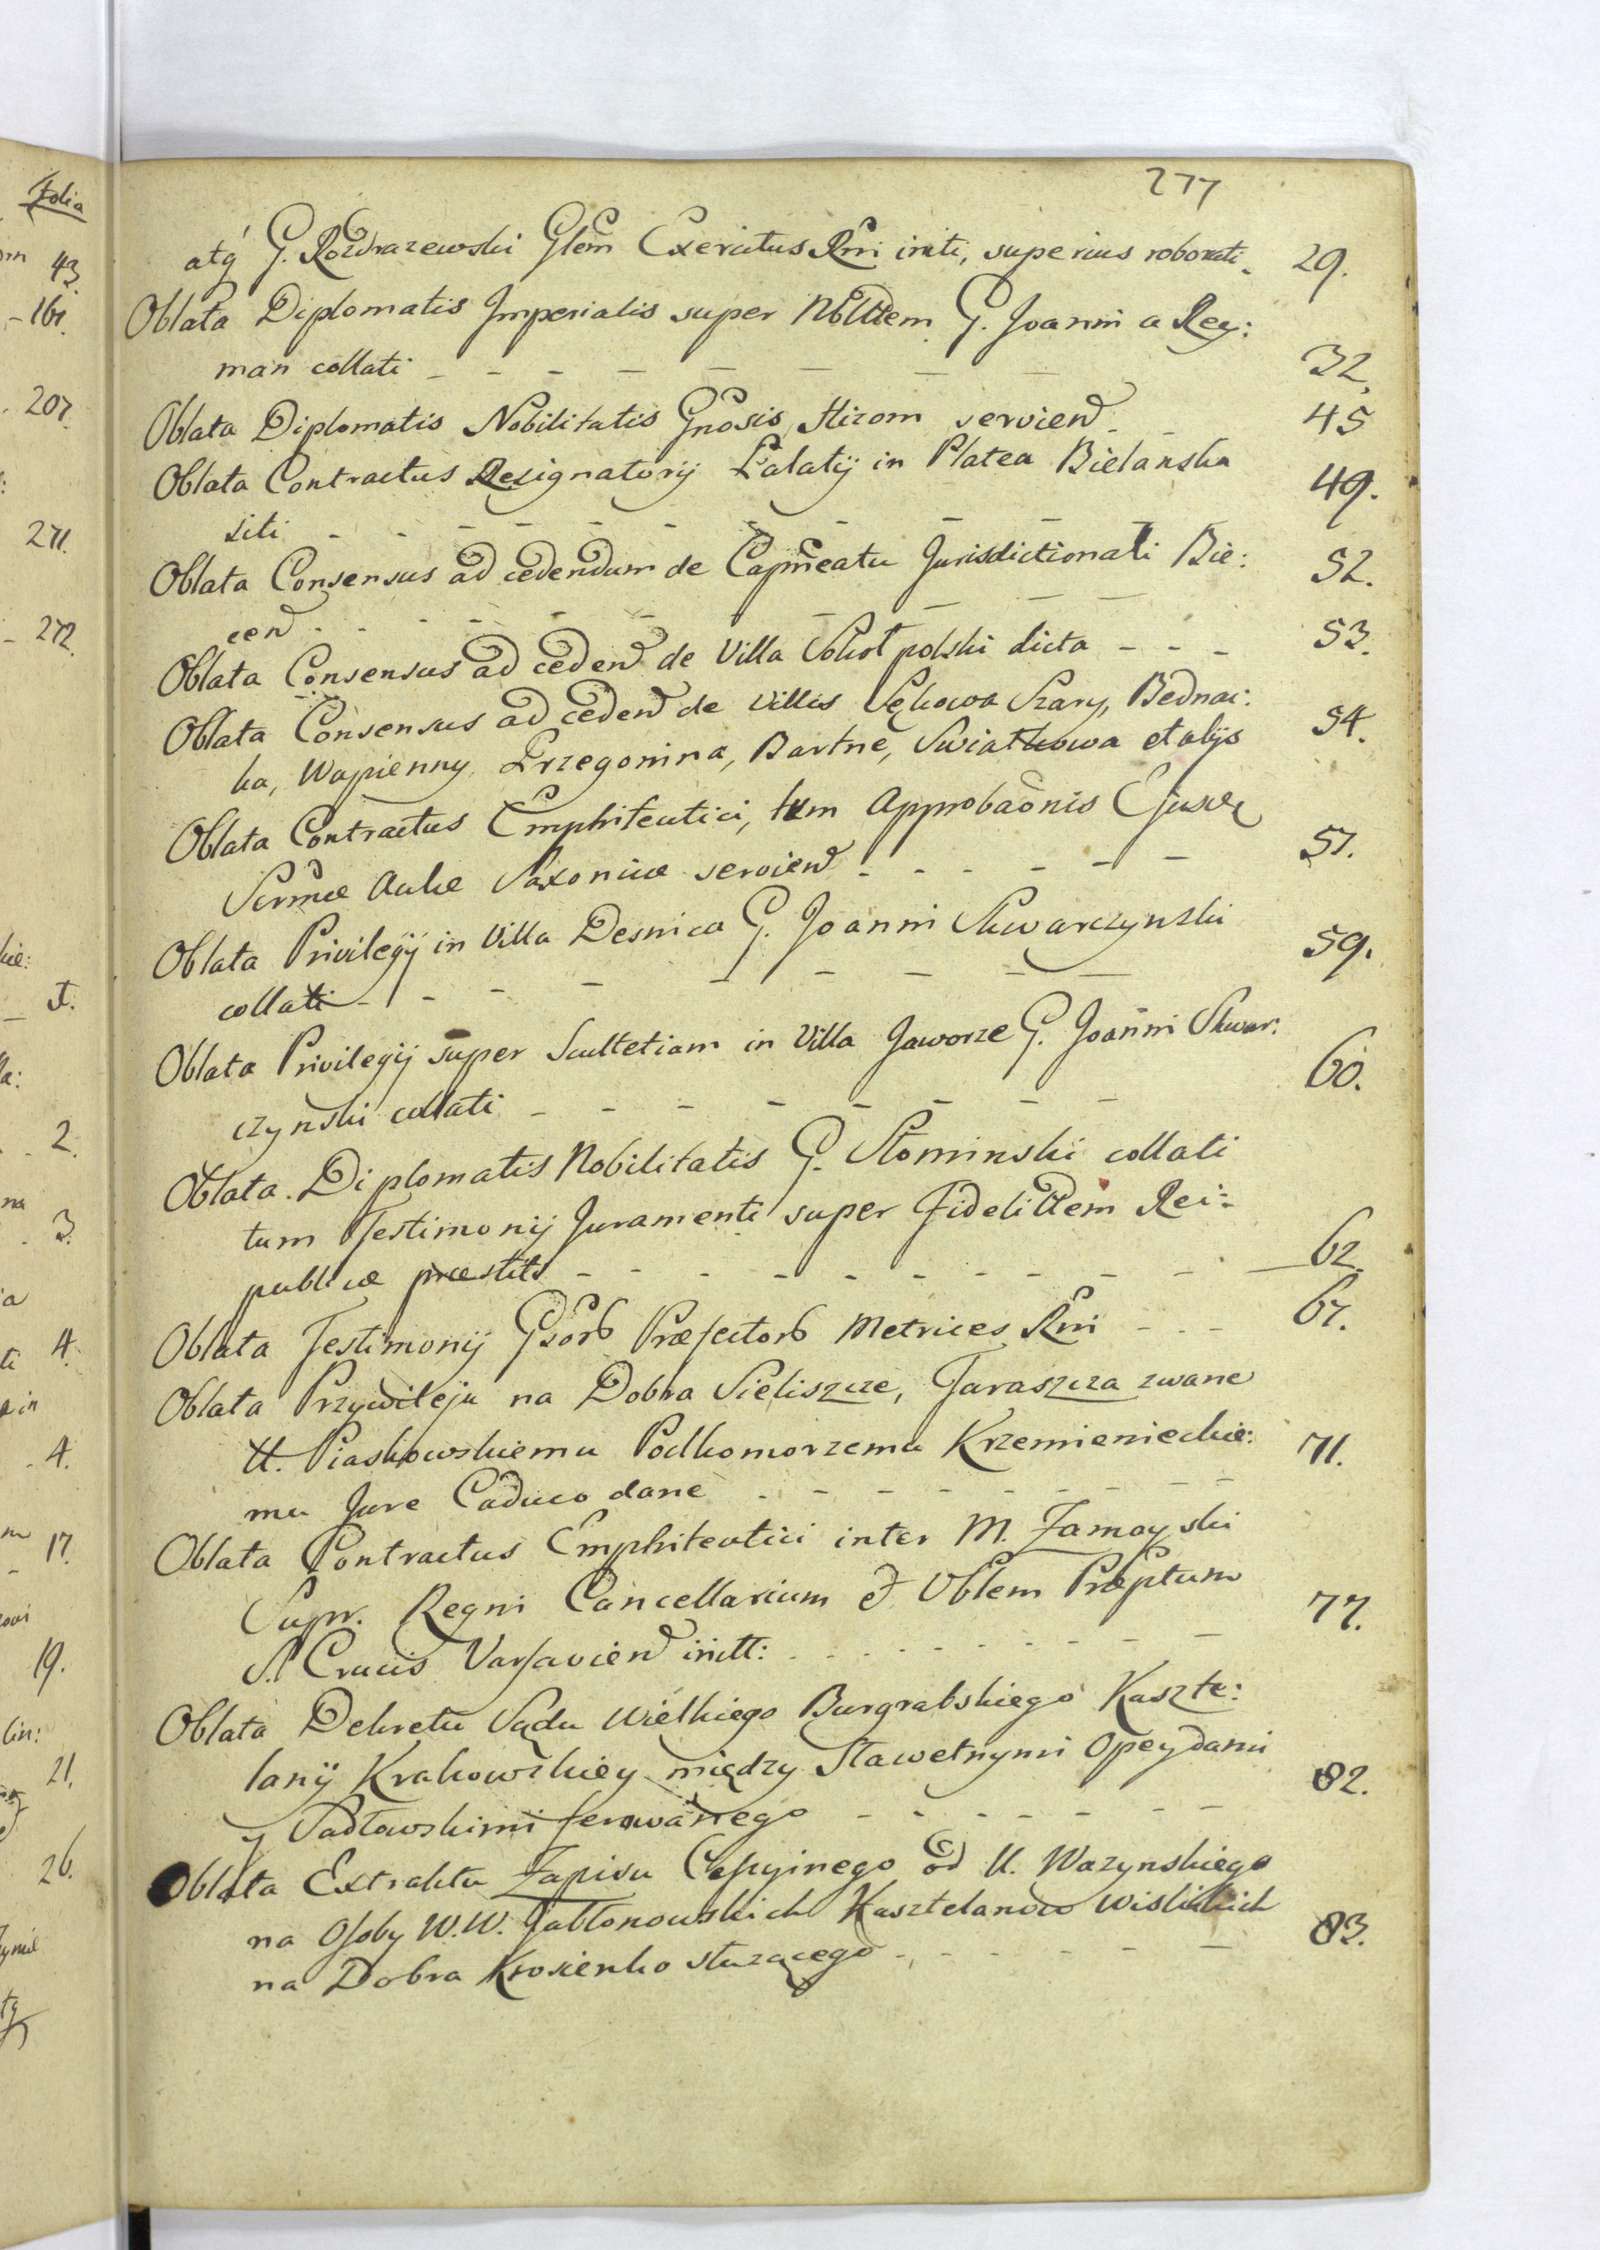 277
atq G. Rozdrazewski Glem Exercitus Rni initi, superius roborati. 29.
Oblata Diplomatis Imperialis super Nobilittem G. Joanni a Rey:
man collati - - - - - - - - 32.
Oblata Diplomatis Nobilitatis Gnosis Hizom serviend - - 45
Oblata Contractus Resignatorij Palatij in Platea Bielanska
siti - - - - - - - - - - 49.
Oblata Consensus ad cedendum de Capneatu Jurisdictionali Bie:
cen - - - - - - - - - 52.
Oblata Consensus ad cedend de Villa Sokoł polski dicta - - - 53.
Oblata Consensus ad cedend de Villis Sękowa Szary, Bednar:
ka, Wapienny, Przegonina, Bartne, Swiatkowa et alijs 54.
Oblata Contractus Emphiteutici, tum Approbaonis Ejusd
Sermæ Aulæ Saxonicæ serviend - - - - - 57.
Oblata Privilegij in Villa Desnica G. Joanni Skwarczynski
collati - - - - - - - - - 59.
Oblata Privilegij super Scultetiam in Villa Jaworze G. Joanni Skwar:
czynski collati - - - - - - - - 60.
Oblata Diplomatis Nobilitatis G. Słominski collati
tum Testimonij Juramenti super Fidelittem Rei:
publicæ præstiti - - - - - - - - - 62.
Oblata Testimonij Gsorb Præfectorb Metrices Rni - - - 67.
Oblata Przywileju na Dobra Sieliszcze, Taraszcza zwane
U. Piaskowskiemu Podkomorzemu Krzemieniecki:
mu Jure Caduco dane - - - - - - - 71.
Oblata Contractus Emphiteutici inter M. Zamoyski
Supr. Regni Cancellarium et Vblem Præptum
S. Crucis Varsaviend initt: - - - - - - - 77.
Oblata Dekretu Sądu Wielkiego Burgrabskiego Kaszte:
lanij Krakowskiey między Sławetnymi Opeydami
y Padłowskimi ferowanego - - - - - - - 82.
Oblata Extraktu Zapisu Cessyinego od U. Wazynskiego
na Osoby W.W. Jabłonowskich Kasztelanow Wislickich
na Dobra Krosienko służącego - - - - - - 83.
Folia
43.
161.
207.
271.
272.
1.
2.
3.
4.
4.
17.
19.
21.
26.